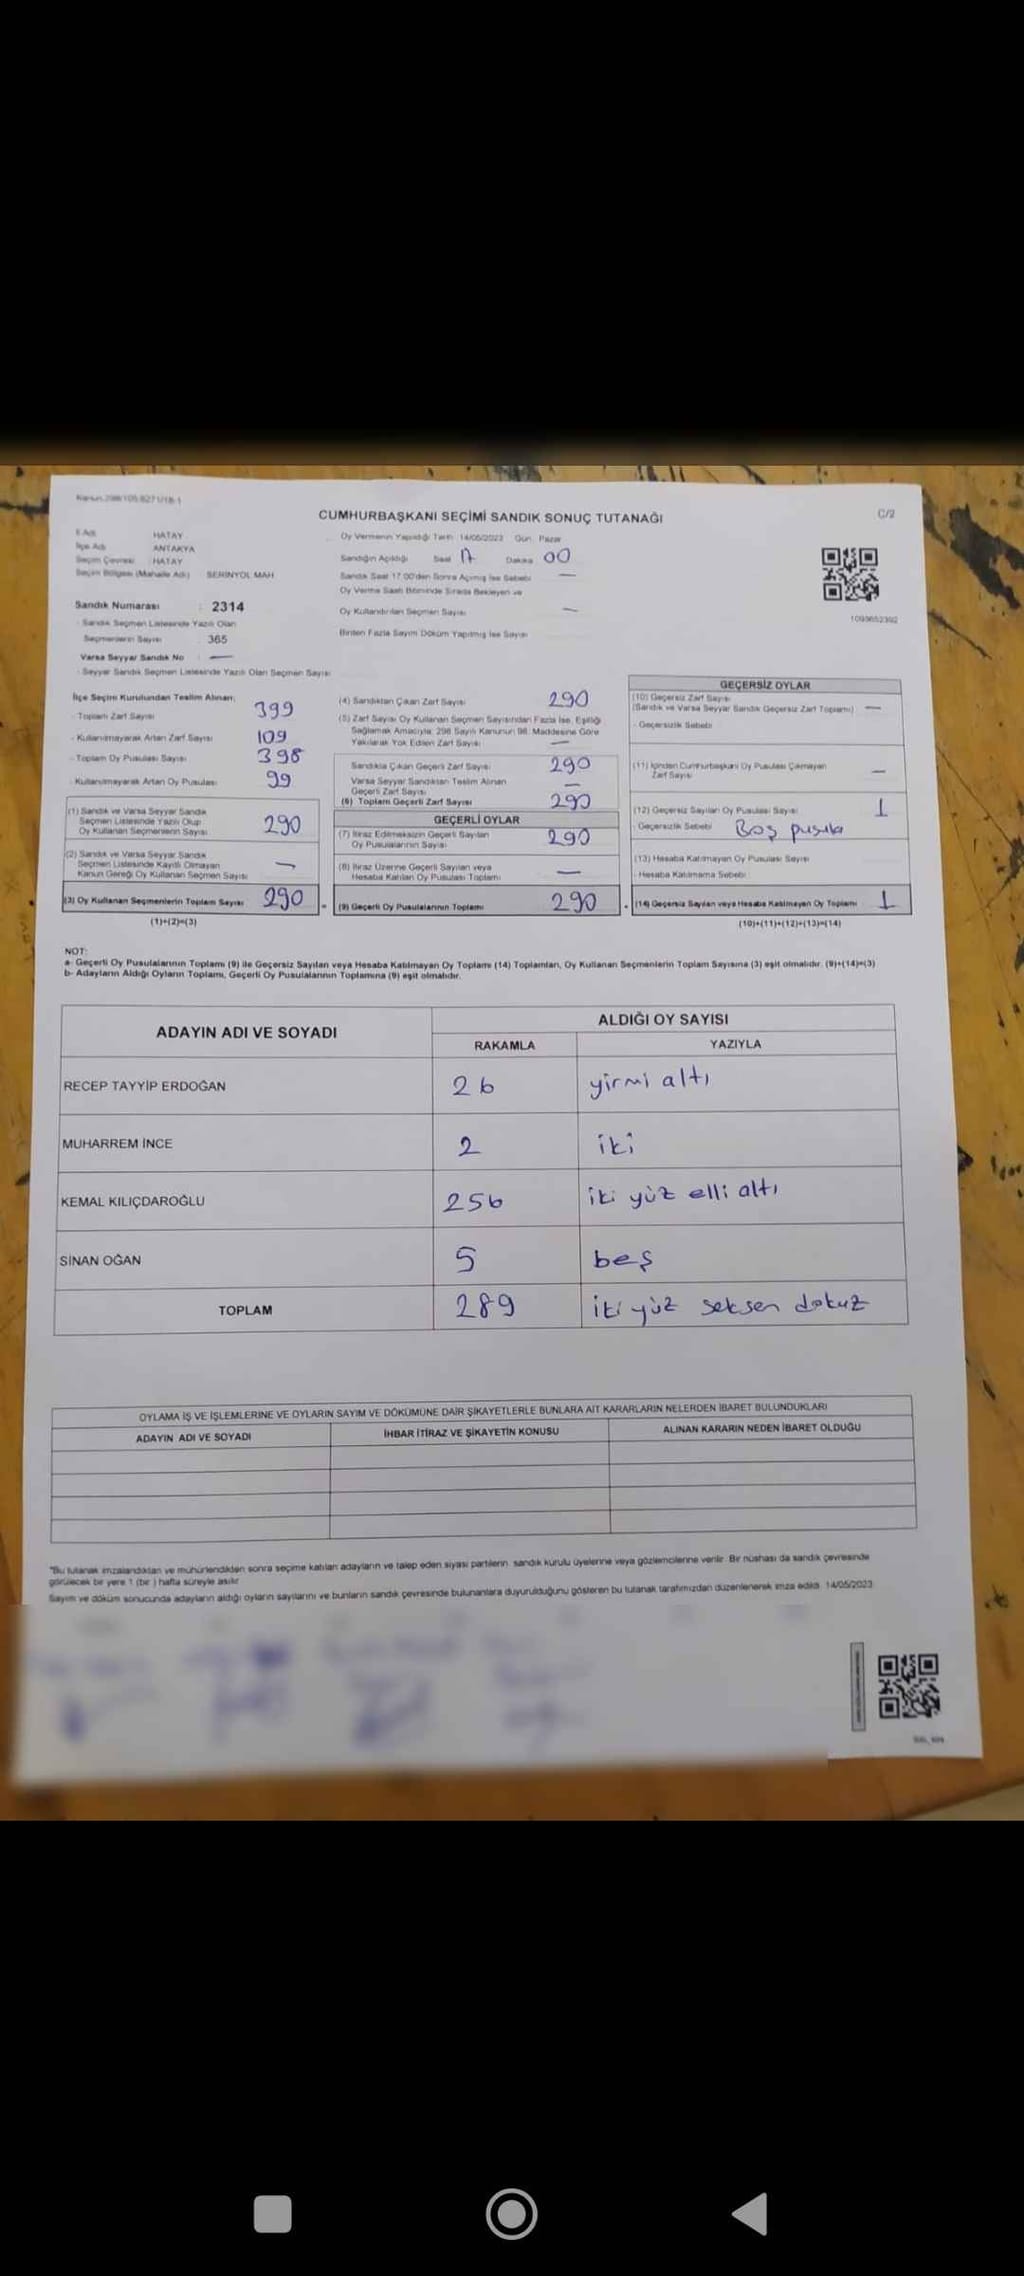 CUMHURBAŞKANI SEÇİMİ SANDIK SONUÇ TUTANAĞI
C/2
İl Adı HATAY
İlçe Adı ANTAKYA
Seçim Çevresi HATAY
Seçim Bölgesi (Mahalle Adı) SERİNYOL MAH.
Sandık Numarası : 2314
- Sandık Seçmen Listesinde Yazılı Olan
Seçmenlerin Sayısı : 365
Varsa Seyyar Sandık No : —
- Seyyar Sandık Seçmen Listesinde Yazılı Olan Seçmen Sayısı
Oy Vermenin Yapıldığı Tarih 14/05/2023 Gün Pazar
Sandığın Açıldığı Saat 17 Dakika 00
Sandık Saat 17.00'den Sonra Açılmış İse Sebebi —
Oy Verme Saati Bitiminde Sırada Bekleyen ve
Oy Kullandırılan Seçmen Sayısı —
Birden Fazla Sayım Döküm Yapılmış İse Sayısı
1093652302
İlçe Seçim Kurulundan Teslim Alınan;
- Toplam Zarf Sayısı 399
- Kullanılmayarak Artan Zarf Sayısı 109
- Toplam Oy Pusulası Sayısı 398
- Kullanılmayarak Artan Oy Pusulası 99
(1) Sandık ve Varsa Seyyar Sandık
Seçmen Listesinde Yazılı Olup
Oy Kullanan Seçmenlerin Sayısı 290
(2) Sandık ve Varsa Seyyar Sandık
Seçmen Listesinde Kayıtlı Olmayan
Kanun Gereği Oy Kullanan Seçmen Sayısı —
(3) Oy Kullanan Seçmenlerin Toplam Sayısı 290
(1)+(2)=(3)
(4) Sandıktan Çıkan Zarf Sayısı 290
(5) Zarf Sayısı Oy Kullanan Seçmen Sayısından Fazla İse, Eşitliği
Sağlamak Amacıyla; 298 Sayılı Kanunun 98. Maddesine Göre
Yakılarak Yok Edilen Zarf Sayısı —
Sandıkta Çıkan Geçerli Zarf Sayısı 290
Varsa Seyyar Sandıktan Teslim Alınan
Geçerli Zarf Sayısı —
(6) Toplam Geçerli Zarf Sayısı 290
GEÇERLİ OYLAR
(7) İtiraz Edilmeksizin Geçerli Sayılan
Oy Pusulalarının Sayısı 290
(8) İtiraz Üzerine Geçerli Sayılan veya
Hesaba Katılan Oy Pusulası Toplamı —
(9) Geçerli Oy Pusulalarının Toplamı 290
GEÇERSİZ OYLAR
(10) Geçersiz Zarf Sayısı
(Sandık ve Varsa Seyyar Sandık Geçersiz Zarf Toplamı) —
- Geçersizlik Sebebi
(11) İçinden Cumhurbaşkanı Oy Pusulası Çıkmayan
Zarf Sayısı —
(12) Geçersiz Sayılan Oy Pusulası Sayısı 1
- Geçersizlik Sebebi Boş pusula
(13) Hesaba Katılmayan Oy Pusulası Sayısı
- Hesaba Katılmama Sebebi
(14) Geçersiz Sayılan veya Hesaba Katılmayan Oy Toplamı 1
(10)+(11)+(12)+(13)=(14)
NOT:
a- Geçerli Oy Pusulalarının Toplamı (9) ile Geçersiz Sayılan veya Hesaba Katılmayan Oy Toplamı (14) Toplamları, Oy Kullanan Seçmenlerin Toplam Sayısına (3) eşit olmalıdır. (9)+(14)=(3)
b- Adayların Aldığı Oyların Toplamı, Geçerli Oy Pusulalarının Toplamına (9) eşit olmalıdır.
ADAYIN ADI VE SOYADI
ALDIĞI OY SAYISI
RAKAMLA YAZIYLA
RECEP TAYYİP ERDOĞAN 26 yirmi altı
MUHARREM İNCE 2 iki
KEMAL KILIÇDAROĞLU 256 iki yüz elli altı
SİNAN OĞAN 5 beş
TOPLAM 289 iki yüz seksen dokuz
OYLAMA İŞ VE İŞLEMLERİNE VE OYLARIN SAYIM VE DÖKÜMÜNE DAİR ŞİKAYETLERLE BUNLARA AİT KARARLARIN NELERDEN İBARET BULUNDUKLARI
ADAYIN ADI VE SOYADI İHBAR İTİRAZ VE ŞİKAYETİN KONUSU ALINAN KARARIN NEDEN İBARET OLDUĞU
"Bu tutanak imzalandıktan ve mühürlendikten sonra seçime katılan adayların ve talep eden siyasi partilerin sandık kurulu üyelerine veya gözlemcilerine verilir. Bir nüshası da sandık çevresinde
görülecek bir yere 1 (bir ) hafta süreyle asılır
Sayım ve döküm sonucunda adayların aldığı oyların sayılarını ve bunların sandık çevresinde bulunanlara duyurulduğunu gösteren bu tutanak tarafımızdan düzenlenerek imza edildi. 14/05/2023